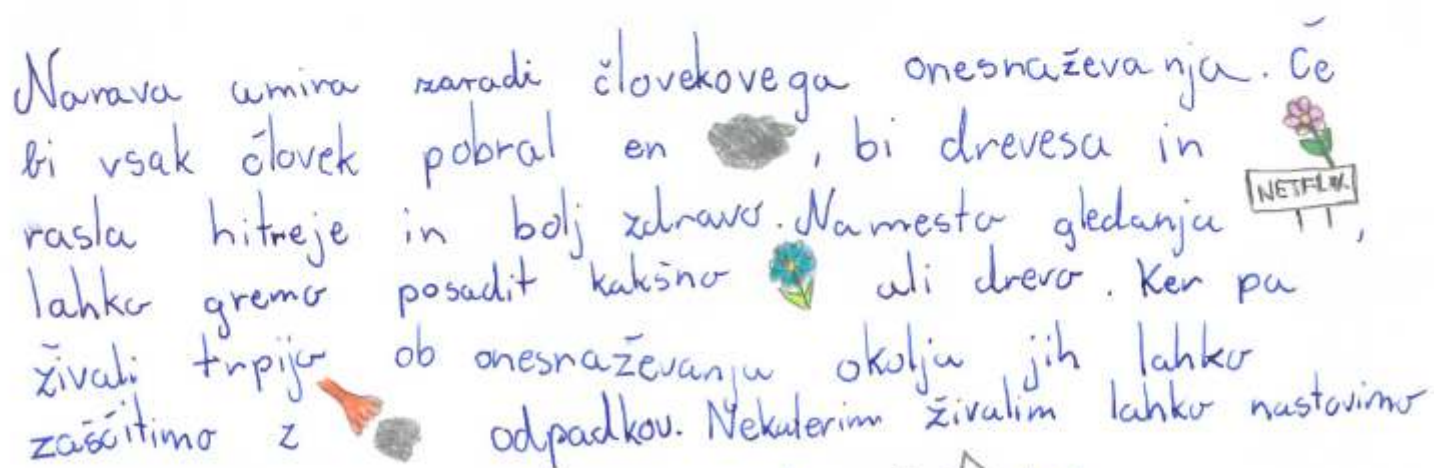 Narava umira zaradi človekovega onesnaževanja. Če
bi vsak človek pobral en , bi drevesa in
NETFLIX
rasla hitreje in bolj zdravo. Namesto gledanja ,
lahko gremo posadit kakšno ali drevo. Ker pa
živali trpijo ob onesnaževanju okolja jih lahko
zaščitimo z odpadkov. Nekaterim živalim lahko nastavimo